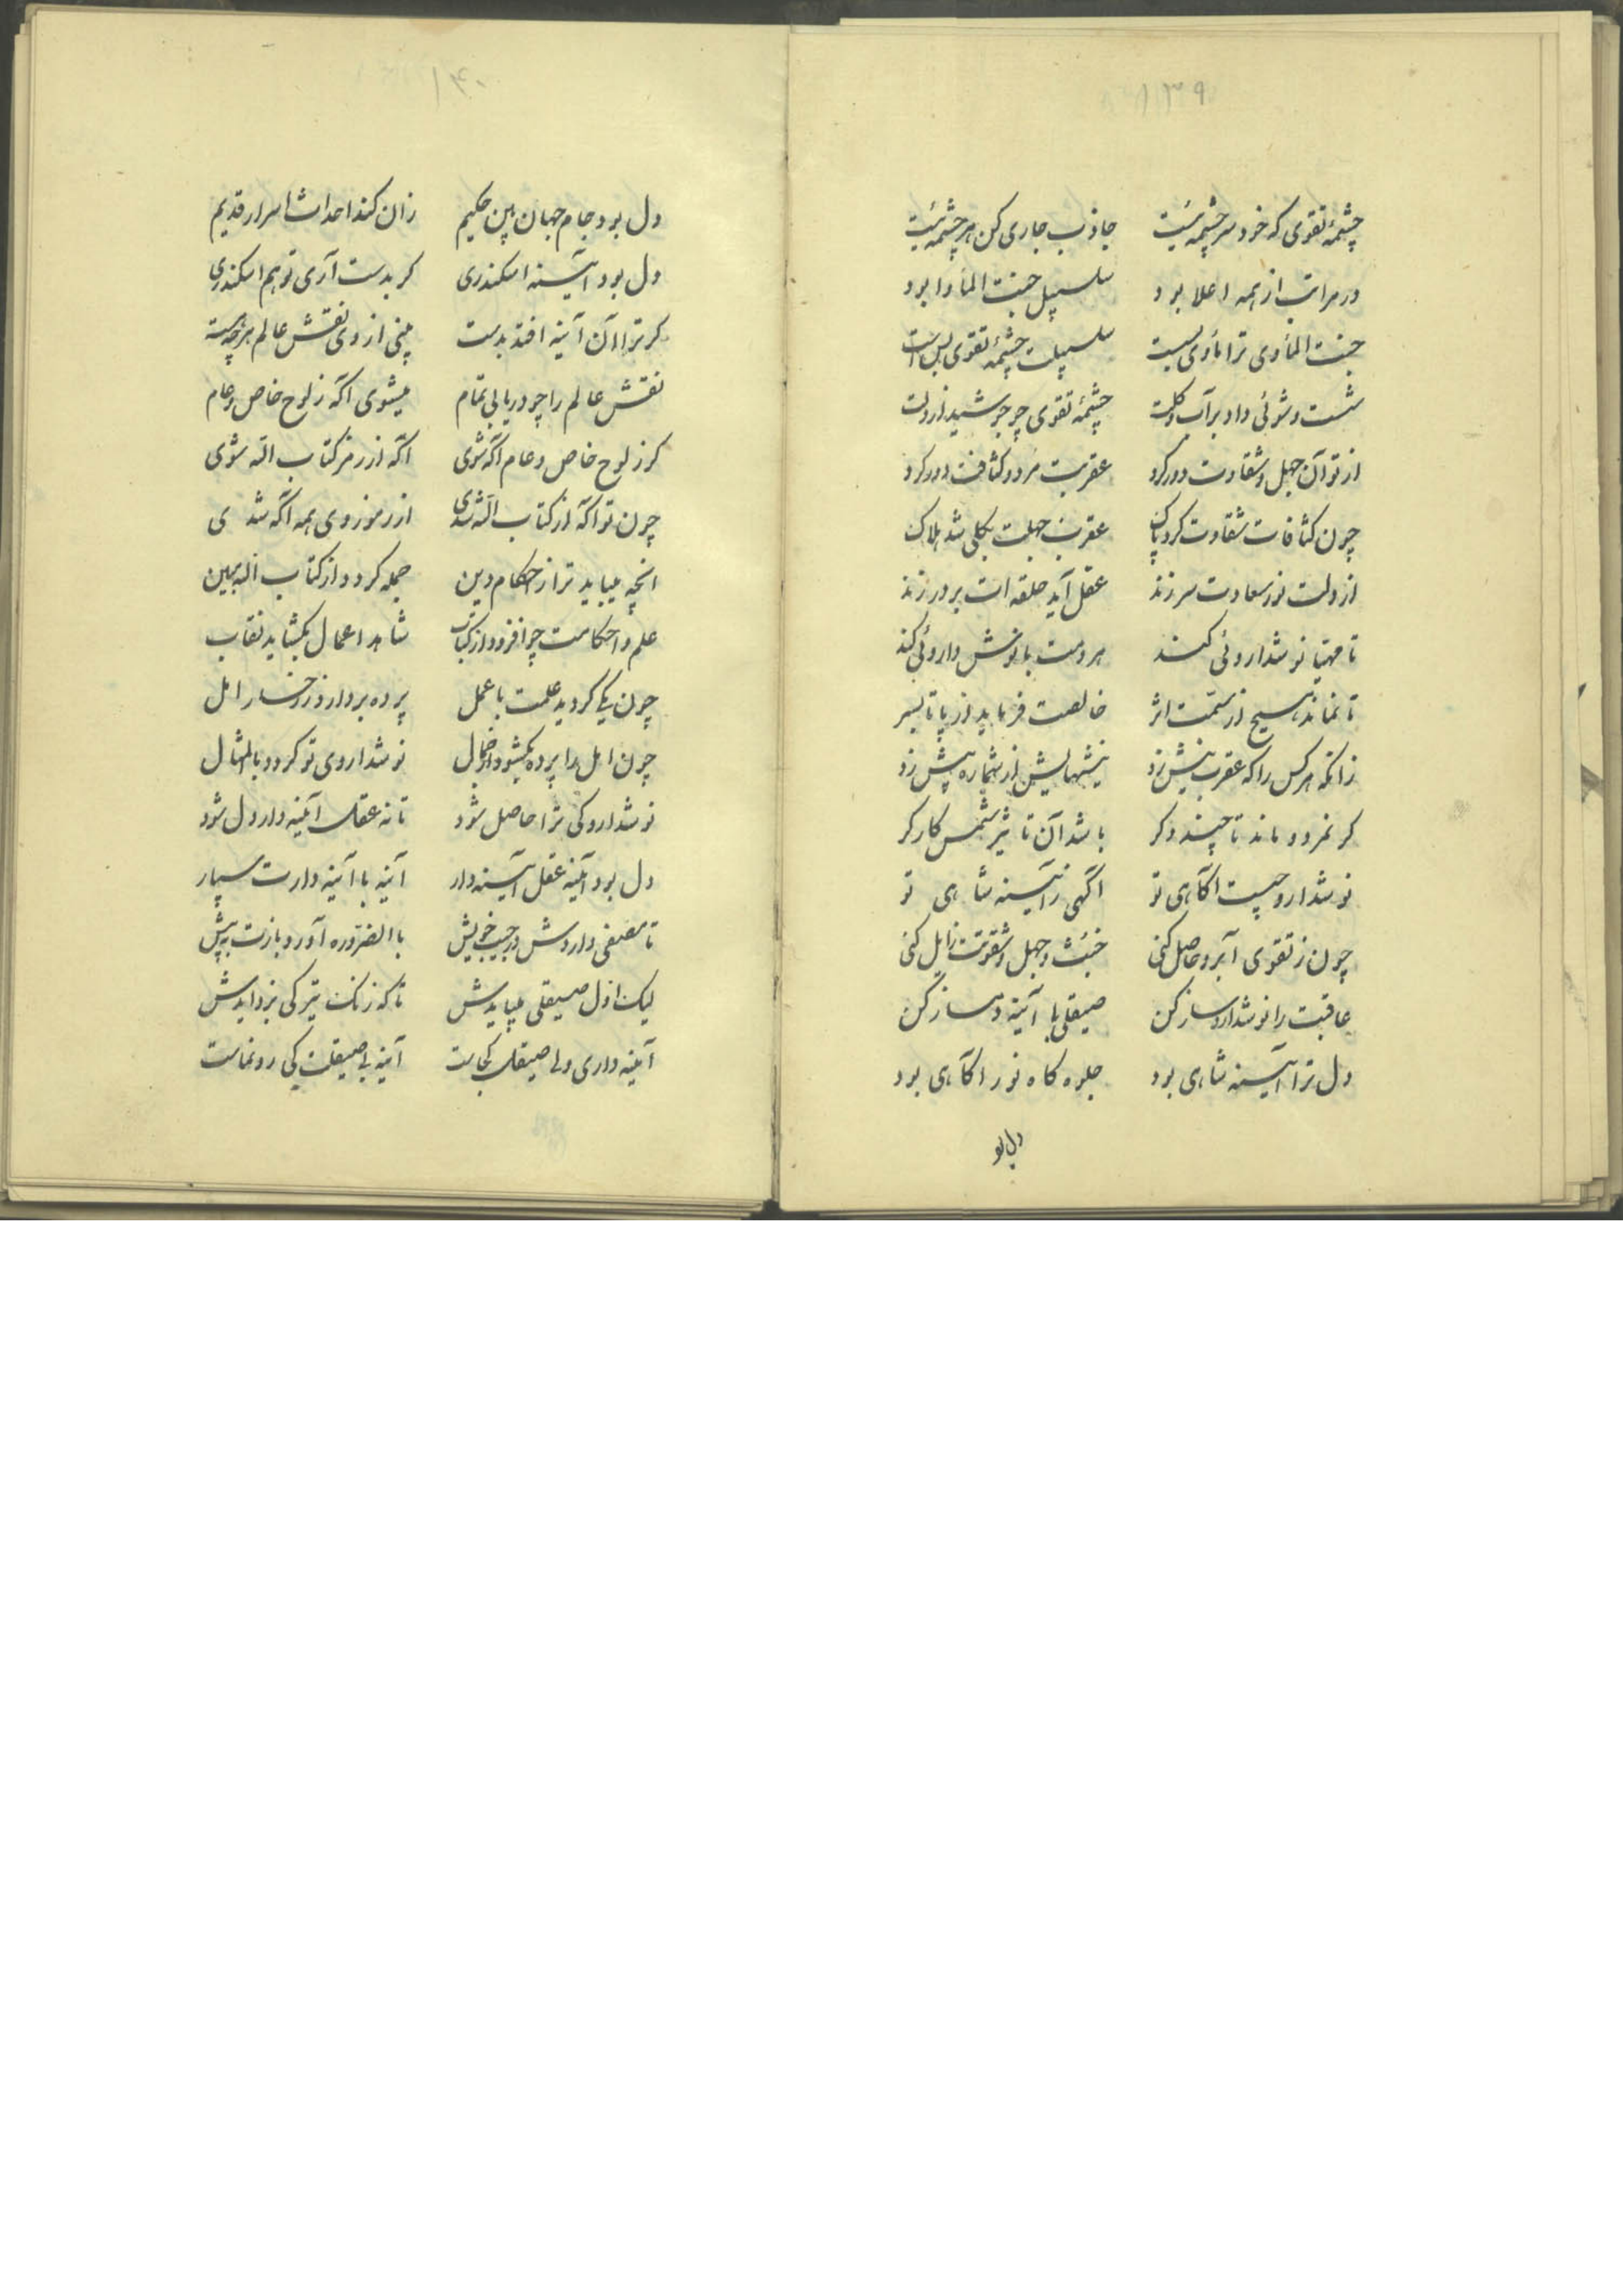 ۱۳۹
چشمهٔ تقوی که خود سرچشمه‌ئیست جاذب جاری کن هر چشمه‌ئیست
در مراتب از همه اعلا بود سلسبیل جنت المأوا بود
جنت المأوی ترا مأوی بسیست سلسبیلت چشمهٔ تقوی بس است
شست و شوئی داد بر آب و گلت چشمهٔ تقوی چو جوشید از دلت
از تو آن جهل و شقاوت دور کرد عقربت مرد و کثافت دور کرد
چون کثافات شقاوت کرد پاک عقرب جهلت بکلی شد هلاک
از دلت نور سعادت سر زند عقل آید حلقه ات بر در زند
تا مهیا نوشداروئی کند هر دمت با نوش داروئی کند
تا نماند هیچ از سمت اثر خالصت فرماید از پا تا بسر
زانکه هر کس را که عقرب نیش زد نیشهایش از شماره بیش زد
کر نمرد و ماند تا چند دکر باشد آن تاثیر سمش کارکر
نوشدارو چیست اکاهی تو اکهی ز آئینه شاهی تو
چون ز تقوی آبرو حاصل کنی خبث و جهل و شقوتت زایل کنی
عاقبت را نوشدارو ساز کن صیقلی با آئینه دمساز کن
دل ترا آئینه شاهی بود جلوه کاه نور اکاهی بود
دل بو
۱۴۰
دل بود جام جهان بین حکیم زان کند احداث اسرار قدیم
دل بود آئینه اسکندری کر بدست آری تو هم اسکندری
کر ترا آن آینه افتد بدست بینی از وی نقش عالم هر چه هست
نقش عالم را چو دریابی تمام میشوی اکه ز لوح خاص و عام
کر ز لوح خاص و عام اکه شوی اکه از رمز کتاب الله شوی
چون تو اکه از کتاب الله شدی از رموز وی همه اکه شدی
انچه میباید ترا ز احکام دین جمله کردد از کتاب الله مبین
علم و احکامت چو افزود از کتاب شاهد اعمال بکشاید نقاب
چون یکی کردید علمت با عمل پرده بردارد ز رخسار امل
چون امل را پرده بکشود از جمال نوشداروی تو کردد بالمثال
نوشدارو کی ترا حاصل شود تا نه عقلت آینه دار دل شود
دل بود آینه عقل آئینه دار آینه با آینه دارت سپار
تا مصفی داردش در جیب خویش باالضروره آورد بازت بپیش
لیک اول صیقلی میبایدش تا که زنک تیرکی بزدایدش
آینه داری ولی صیقلت کجاست آینه بی صیقلت کی رونماست